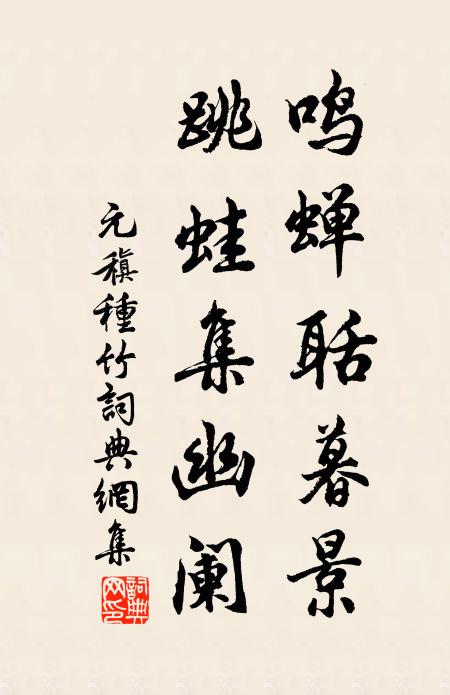 鸣蝉聒暮景
跳蛙集幽阑
元稹種竹詞典網集
詞典网印